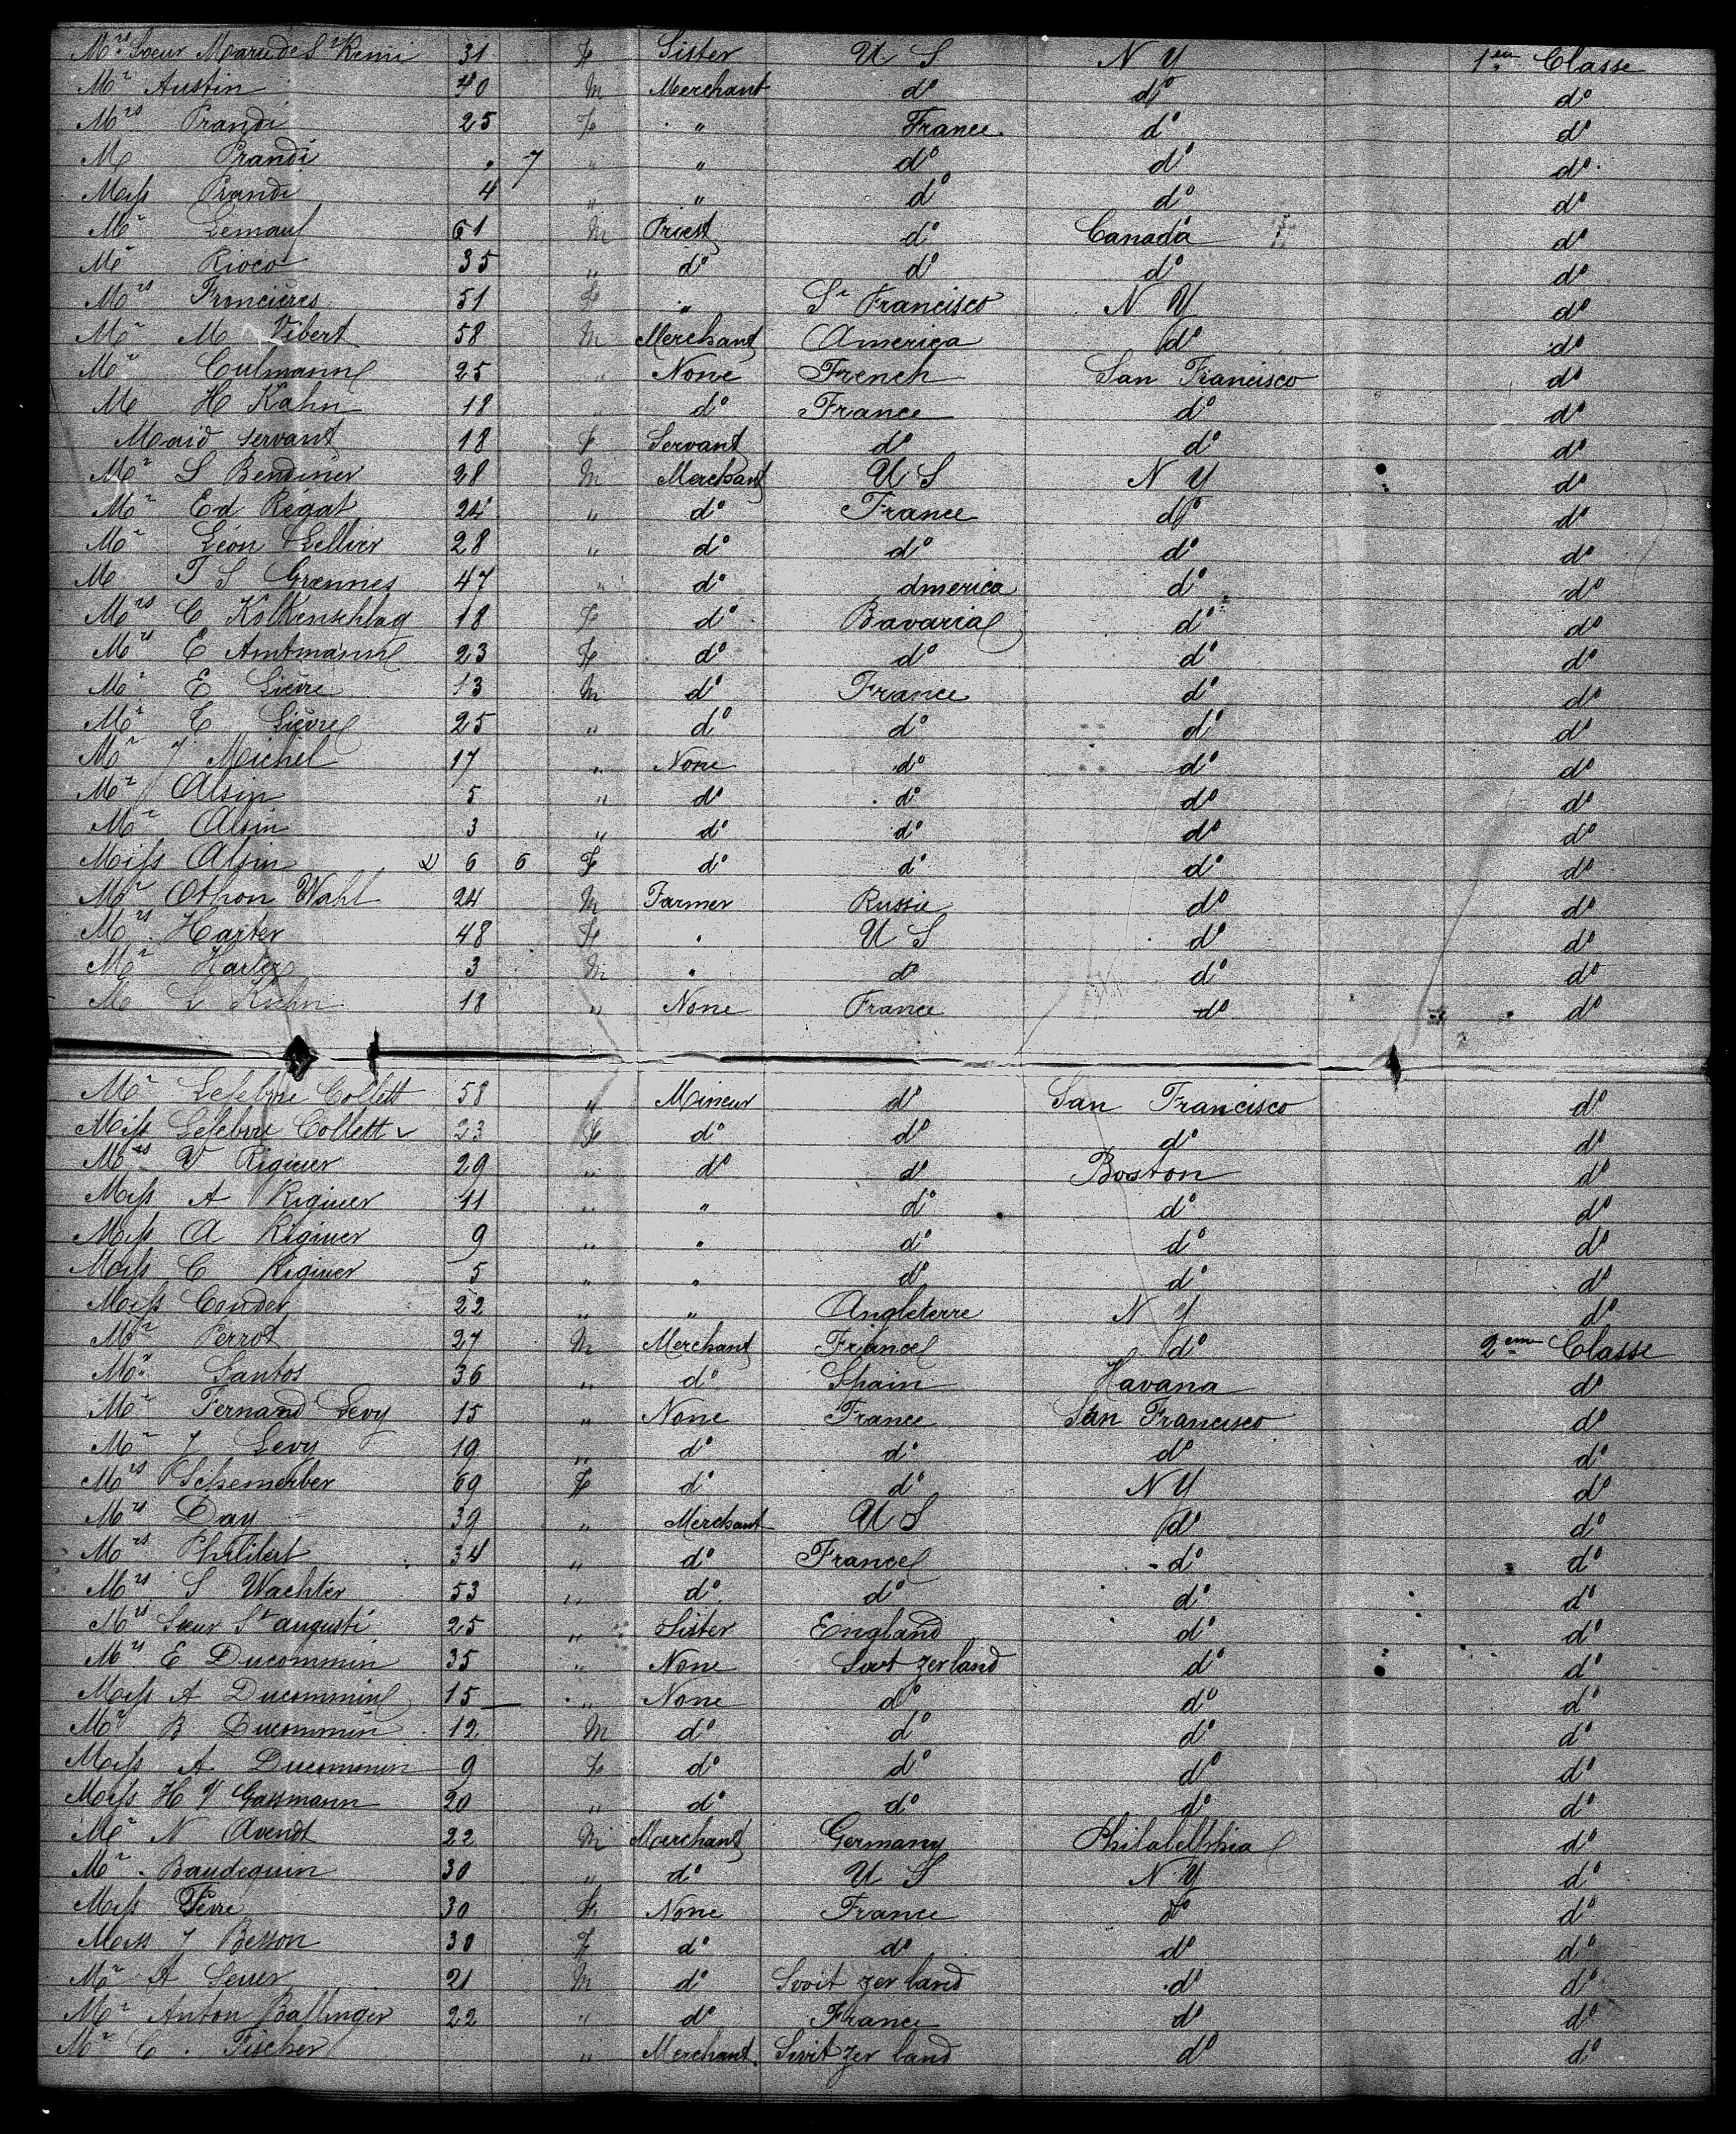 Mrs Soeur Marie de St Remi 31 F Sister U S N Y 1ere Classe
Mr Austin 40 M Merchant do do do
Mrs Prandi 25 F " France do do
M Prandi " 7 " " do do do
Miss Prandi 4 " " do do do
Mr 61 M Priest do Canada do
Mr Rioco 35 " do do do do
Mrs Froncières 51 F " Sn Francisco N Y do
Mr M Vibert 58 M Merchant America do do
Mr Culmann 25 " None French San Francisco do
M H Kahn 18 " do France do do
Maid servant 18 F Servant do do do
Mr S Bendiner 28 M Merchant U S N Y do
Mr Ed Régat 24 " do France do do
Mr Léon Lellier 28 " do do do do
M T S Grennes 47 " do America do do
Mrs C Kolkenschlag 18 F do Bavaria do do
Mrs E Amtmann 23 F do do do do
Mr E Lièvre 13 M do France do do
Mr E Lièvre 25 " do do do do
Mr J Michel 17 " None do do do
Mr Alsin 5 " do do do do
Mr Alsin 3 " do do do do
Miss Alsin 6 6 F do do do do
Mr Othon Wahl 24 M Farmer Russie do do
Mrs Harter 48 F " U S do do
Mr Harter 3 M " do do do
M L Kuhn 18 " None France do do
Mr Lefebvre Collett 58 " Mineur do San Francisco do
Miss Lefebvre Collett 23 F do do do do
Mrs V Riginer 29 " do do Boston do
Miss A Riginer 11 " " do do do
Miss A Riginer 9 " " do do do
Miss C Riginer 5 " " do do do
Miss Couder 22 " " Angleterre N Y do
Mr Perrot 27 M Merchant France do 2eme Classe
Mr Santos 36 " do Spain Havana do
Mr Fernand Levy 15 " None France San Francisco do
Mr J Levy 19 " do do do do
Mrs Schemerber 69 F do do N Y do
Mrs Day 39 " Merchant U S do do
Mrs Philibert 34 " do France do do
Mrs S Wachter 53 " do do do do
Mrs Soeur St Augusti 25 " Sister England do do
Mrs E Ducommin 35 " None Swit zerland do do
Miss A Ducommin 15 " None do do do
Mr B Ducommin 12 M do do do do
Miss A Ducommin 9 F do do do do
Miss H Gassmann 20 " do do do do
Mr N Avendt 22 M Merchant Germany Philadelphia do
Mr Baudequin 30 " do U S N Y do
Miss Fèvre 30 F None France do do
Miss J Besson 30 F do do do do
Mr A Seuer 21 M do Swit zer land do do
Mr Anton Ballinger 22 " do France do do
Mr C. Fischer " Merchant Swit zer land do do